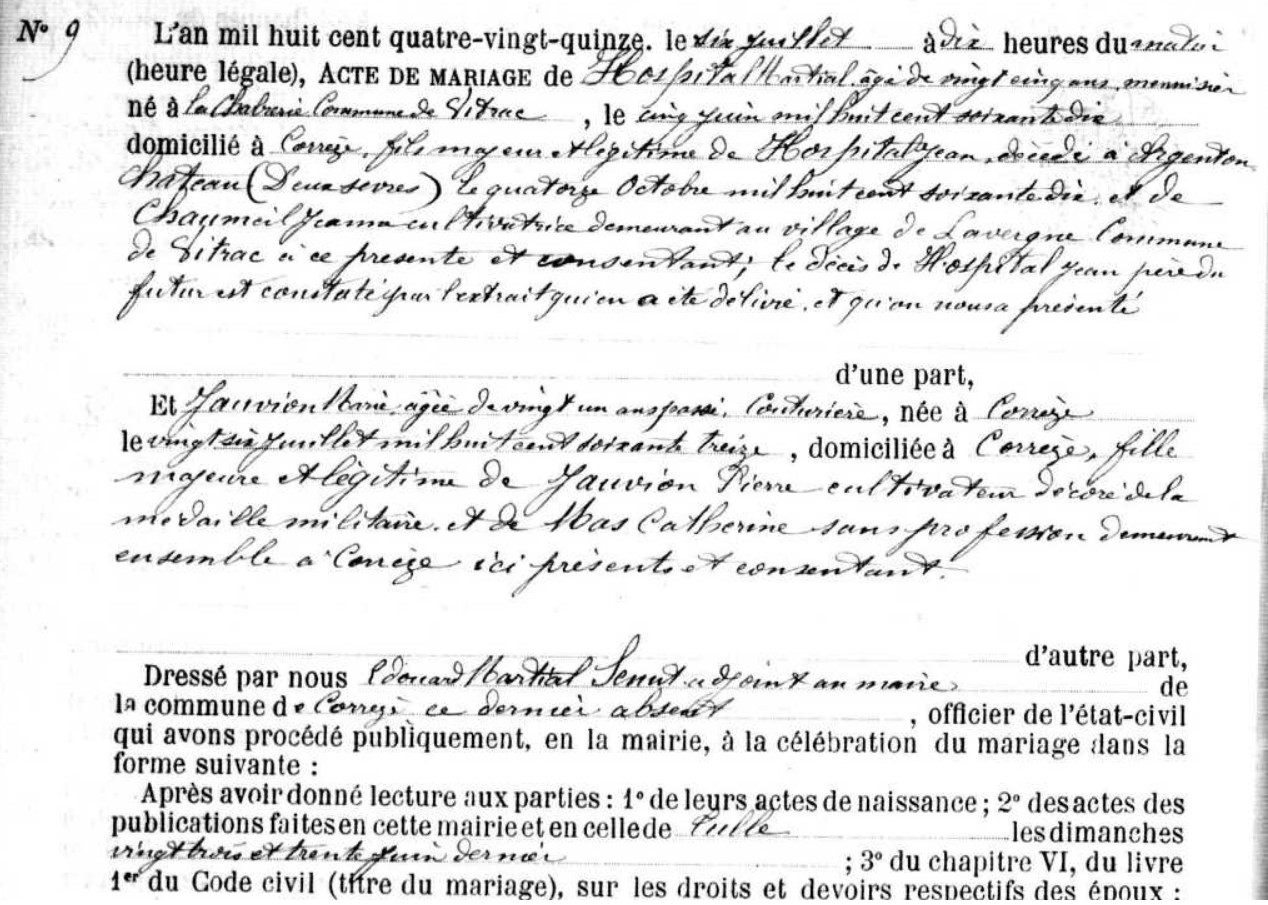 N° 9
L'an mil huit cent quatre-vingt-quinze. le six juillet à dix heures du matin
(heure légale), ACTE DE MARIAGE de Hospital Martial, âgé de vingt cinq ans, menuisier
né à la Chabrerie Commune de Vitrac, le cinq juin mil huit cent soixante dix
domicilié à Corrèze, fils majeur et légitime de Hospital Jean, décédé à Argenton
Château (Deux sèvres) le quatorze Octobre mil huit cent soixante dix, et de
Chaumeil Jeanne cultivatrice demeurant au village de Lavergne Commune
de Vitrac à ce présente et consentant; le décès de Hospital Jean père du
futur est constaté par l'extrait qui en a été délivré, et qu'on nous a présenté
d'une part,
Et Jauvion Marie, âgée de vingt un ans passé, Couturière, née à Corrèze
le vingt six juillet mil huit cent soixante treize, domiciliée à Corrèze, fille
majeure et légitime de Jauvion Pierre cultivateur décoré de la
médaille militaire, et de Mas Catherine sans profession demeurant
ensemble à Corrèze ici présents et consentant.
d'autre part,
Dressé par nous Edouard Martial Senut adjoint au maire de
la commune de Corrèze ce dernier absent, officier de l'état-civil
qui avons procédé publiquement, en la mairie, à la célébration du mariage dans la
forme suivante :
Après avoir donné lecture aux parties : 1° de leurs actes de naissance ; 2° des actes des
publications faites en cette mairie et en celle de Tulle les dimanches
vingt trois et trente juin dernier ; 3° du chapitre VI, du livre
1er du Code civil (titre du mariage), sur les droits et devoirs respectifs des époux ;